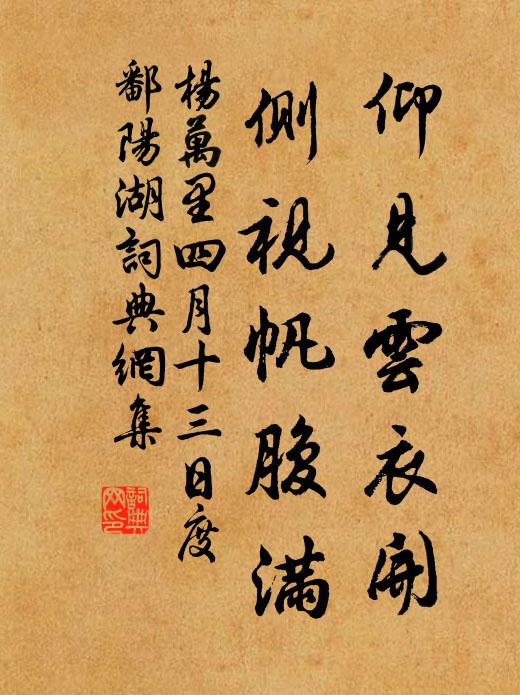 仰見雲衣開
側視帆腹滿
楊萬里四月十三日度
鄱陽湖詞典網集
詞典
网印